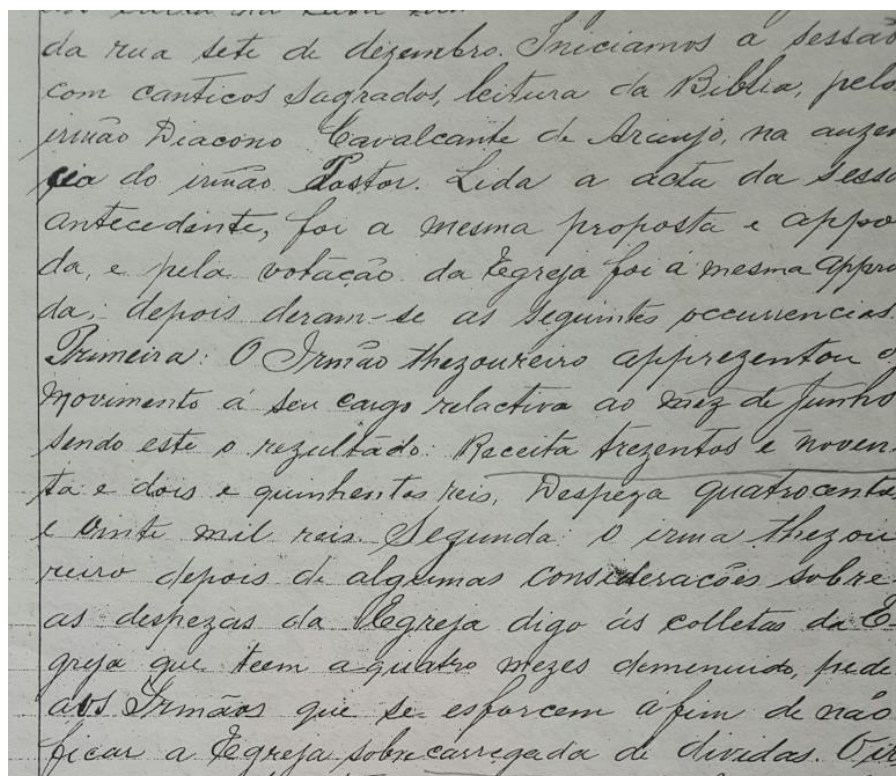 da rua sete de dezembro. Iniciamos a sessão
com canticos sagrados, leitura da Biblia, pelo
irmão Diacono Cavalcante de Araujo, na auzen
cia do irmão Pastor. Lida a acta da sessã
antecedente, foi a mesma proposta e appo
da, e pela votação da Egreja foi a mesma appro
da; depois deram-se as seguintes occurrencias.
Primeira: O Irmão thezoureiro apprezentou o
movimento á seu cargo relactivo ao mez de Junho
sendo este o rezultado: Receita trezentos e noven
ta e dois e quinhentos reis, Despeza quatrocentos
e vinte mil reis. Segunda: o irmã thezou
reiro depois de algumas considerações sobre
as despezas da Egreja digo ás colletas da E
greja que teem a quatro mezes demenuido, pede
aos Irmãos que se esforcem á fim de não
ficar a Egreja sobrecarregada de dividas.